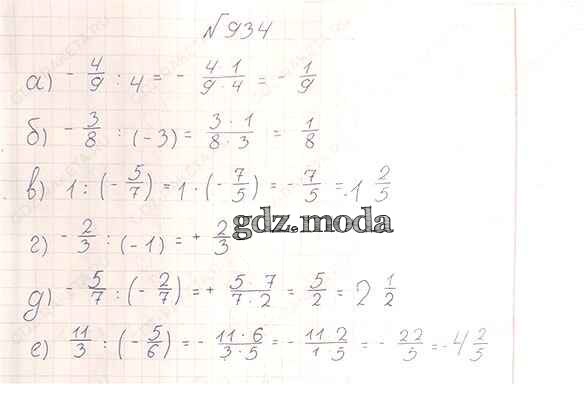 №934
а) - 4/9 : 4 = - (4·1)/(9·4) = - 1/9
б) - 3/8 : (-3) = (3·1)/(8·3) = 1/8
в) 1 : (- 5/7) = 1 · (- 7/5) = - 7/5 = -1 2/5
г) - 2/3 : (-1) = + 2/3
gdz.moda
д) - 5/7 : (- 2/7) = + (5·7)/(7·2) = 5/2 = 2 1/2
е) 11/3 : (- 5/6) = - (11·6)/(3·5) = - (11 2)/(1 5) = - 22/5 = -4 2/5